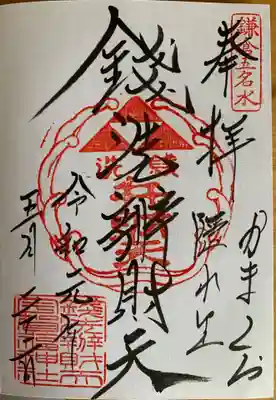 鎌倉五名水
奉拝
かまくら
隠れ里
錢洗辨財天
令和元年
五月